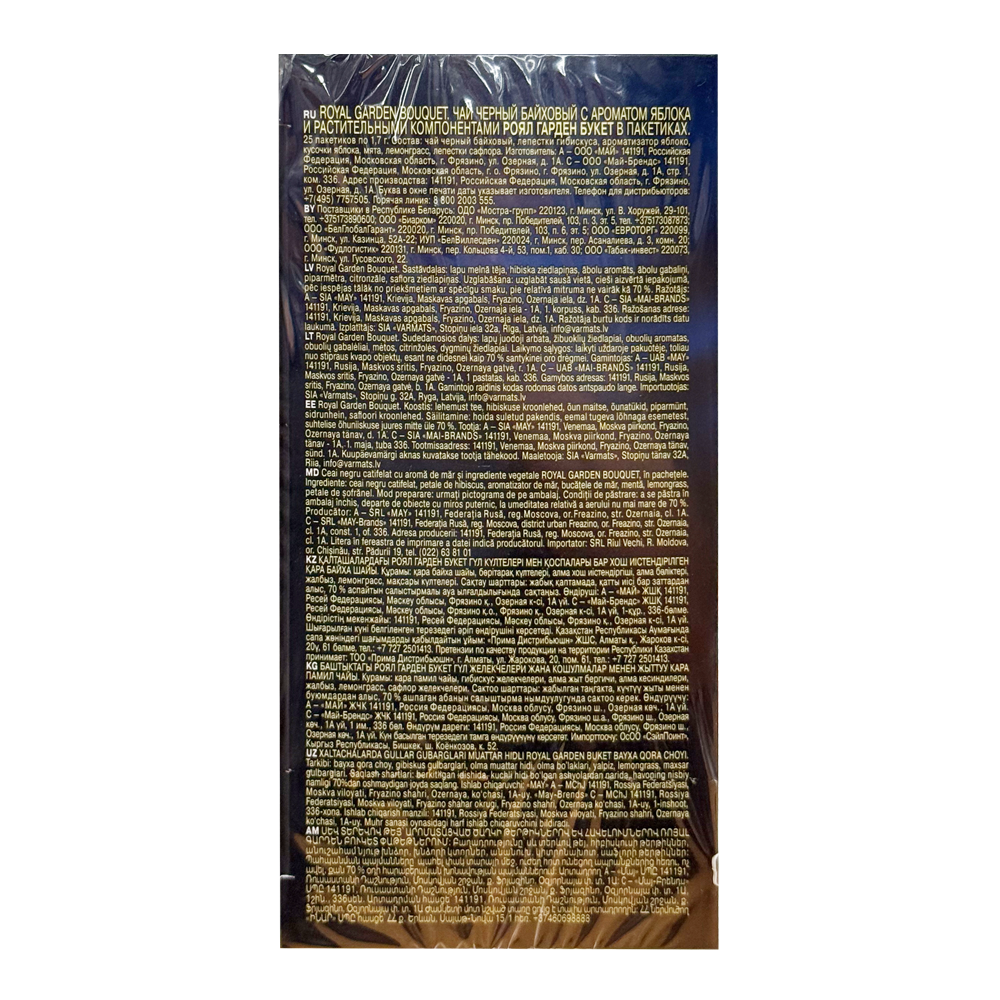 RU ROYAL GARDEN BOUQUET. ЧАЙ ЧЕРНЫЙ БАЙХОВЫЙ С АРОМАТОМ ЯБЛОКА
И РАСТИТЕЛЬНЫМИ КОМПОНЕНТАМИ РОЯЛ ГАРДЕН БУКЕТ В ПАКЕТИКАХ.
25 пакетиков по 1,7 г. Состав: чай черный байховый, лепестки гибискуса, ароматизатор яблоко,
кусочки яблока, мята, лемонграсс, лепестки сафлора. Изготовитель: А – ООО «МАЙ» 141191, Российская
Федерация, Московская область, г. Фрязино, ул. Озерная, д. 1А. С – ООО «Май-Брендс» 141191,
Российская Федерация, Московская область, г. о. Фрязино, г. Фрязино, ул. Озерная, д. 1А, стр. 1,
ком. 336. Адрес производства: 141191, Российская Федерация, Московская область, г. Фрязино,
ул. Озерная, д. 1А. Буква в окне печати даты указывает изготовителя. Телефон для дистрибьюторов:
+7(495) 7757505. Горячая линия: 8 800 2003 555.
BY Поставщики в Республике Беларусь: ОДО «Мостра-групп» 220123, г. Минск, ул. В. Хоружей, 29-101,
тел. +375173890600; ООО «Биарком» 220020, г. Минск, пр. Победителей, 103, п. 3, эт. 5, тел. +375173087873;
ООО «БелГлобалГарант» 220020, г. Минск, пр. Победителей, 103, п. 6, эт. 5; ООО «ЕВРОТОРГ» 220099,
г. Минск, ул. Казинца, 52А-22; ИУП «БелВиллесден» 220024, г. Минск, пер. Асаналиева, д. 3, комн. 20;
ООО «Фудлогистик» 220131, г. Минск, пер. Кольцова 4-й, 53, пом.1, каб. 30; ООО «Табак-инвест» 220073,
г. Минск, ул. Гусовского, 22.
LV Royal Garden Bouquet. Sastāvdaļas: lapu melnā tēja, hibiska ziedlapiņas, ābolu aromāts, ābolu gabaliņi,
piparmētra, citronzāle, saflora ziedlapiņas. Uzglabāšana: uzglabāt sausā vietā, cieši aizvērtā iepakojumā,
pēc iespējas tālāk no priekšmetiem ar spēcīgu smaku, pie relatīvā mitruma ne vairāk kā 70 %. Ražotājs:
A – SIA «MAY» 141191, Krievija, Maskavas apgabals, Fryazino, Ozernaja iela, dz. 1A. C – SIA «MAI-BRANDS»
141191, Krievija, Maskavas apgabals, Fryazino, Ozernaja iela - 1A, 1. korpuss, kab. 336. Ražošanas adrese:
141191, Krievija, Maskavas apgabals, Fryazino, Ozernaja iela, dz. 1A. Ražotāja burtu kods ir norādīts datu
laukumā. Izplatītājs: SIA «VARMATS», Stopiņu iela 32a, Rīga, Latvija, info@varmats.lv
LT Royal Garden Bouquet. Sudedamosios dalys: lapų juodoji arbata, žibuoklių žiedlapiai, obuolių aromatas,
obuolių gabalėliai, mėtos, citrinžolės, dygminų žiedlapiai. Laikymo sąlygos: laikyti uždaroje pakuotėje, toliau
nuo stipraus kvapo objektų, esant ne didesnei kaip 70 % santykinei oro drėgmei. Gamintojas: A – UAB «MAY»
141191, Rusija, Maskvos sritis, Fryazino, Ozernaya gatvė, г. 1A. C – UAB «MAI-BRANDS» 141191, Rusija,
Maskvos sritis, Fryazino, Ozernaya gatvė - 1A, 1 pastatas, kab. 336. Gamybos adresas: 141191, Rusija, Maskvos
sritis, Fryazino, Ozernaya gatvė, b. 1A. Gamintojo raidinis kodas rodomas datos antspaudo lange. Importuotojas:
SIA «Varmats», Stopiņų g. 32A, Ryga, Latvija, info@varmats.lv
EE Royal Garden Bouquet. Koostis: lehemust tee, hibiskuse kroonlehed, õun maitse, õunatükid, piparmünt,
sidrunhein, safloori kroonlehed. Säilitamine: hoida suletud pakendis, eemal tugeva lõhnaga esemetest,
suhtelise õhuniiskuse juures mitte üle 70 %. Tootja: A – OSAÜ «MAY» 141191, Venemaa, Moskva piirkond, Fryazino,
Ozernaya tänav, d. 1A. C – SIA «MAI-BRANDS» 141191, Venemaa, Moskva piirkond, Fryazino, Ozernaya
tänav - 1A, 1. maja, tuba 336. Tootmisaadress: 141191, Venemaa, Moskva piirkond, Fryazino, Ozernaya tänav,
sünd. 1A. Kuupäevamärgi aknas kuvatakse tootja tähekood. Maaletooja: SIA «Varmats», Stopiņu tänav 32A,
Riia, info@varmats.lv
MD Ceai negru catifelat cu aromă de măr și ingrediente vegetale ROYAL GARDEN BOUQUET, în pachețele.
Ingrediente: ceai negru catifelat, petale de hibiscus, aromatizator de măr, bucățele de măr, mentă, lemongrass,
petale de șofrănel. Mod preparare: urmați pictograma de pe ambalaj. Condiții de păstrare: a se păstra în
ambalaj închis, departe de obiecte cu miros puternic, la umeditatea relativă a aerului nu mai mare de 70 %.
Producător: A – SRL «MAY» 141191, Federația Rusă, reg. Moscova, or. Freazino, str. Ozernaia, cl. 1A.
C – SRL «MAY-Brands» 141191, Federația Rusă, reg. Moscova, district urban Freazino, or. Freazino, str. Ozernaia,
cl. 1A, const. 1, of. 336. Adresa producerii: 141191, Federația Rusă, reg. Moscova, or. Freazino, str. Ozernaia,
cl. 1A. Litera în fereastra de imprimare a datei indică producătorul. Importator: SRL Rîul Vechi, R. Moldova,
or. Chișinău, str. Pădurii 19, tel. (022) 63 81 01
KZ ҚАЛТАШАЛАРДАҒЫ РОЯЛ ГАРДЕН БУКЕТ ГҮЛ КҮЛТЕЛЕРІ МЕН ҚОСПАЛАРЫ БАР ХОШ ИІСТЕНДІРІЛГЕН
ҚАРА БАЙХА ШАЙЫ. Құрамы: қара байха шайы, бөрітарақ күлтелері, алма хош иістендіргіші, алма бөліктері,
жалбыз, лемонграсс, мақсары күлтелері. Сақтау шарттары: жабық қаптамада, қатты иісі бар заттардан
алыс, 70 % аспайтын салыстырмалы ауа ылғалдылығында сақтаңыз. Өндіруші: А – «МАЙ» ЖШҚ 141191,
Ресей Федерациясы, Мәскеу облысы, Фрязино қ., Озерная к-сі, 1А үй. С – «Май-Брендс» ЖШҚ 141191,
Ресей Федерациясы, Мәскеу облысы, Фрязино қ.о., Фрязино қ., Озерная к-сі, 1А үй, 1-құр., 336-бөлме.
Өндірістің мекенжайы: 141191, Ресей Федерациясы, Мәскеу облысы, Фрязино қ., Озерная к-сі, 1А үй.
Шығарылған күні белгіленген терезедегі әріп өндірушіні көрсетеді. Қазақстан Республикасы Аумағында
сапа жөніндегі шағымдарды қабылдайтын ұйым: «Прима Дистрибьюшн» ЖШС, Алматы қ., Жароков к-сі,
20ү, 61 бөлме, тел.: +7 727 2501413. Претензии по качеству продукции на территории Республики Казахстан
принимает: ТОО «Прима Дистрибьюшн», г. Алматы, ул. Жарокова, 20, пом. 61, тел.: +7 727 2501413.
KG БАШТЫКТАГЫ РОЯЛ ГАРДЕН БУКЕТ ГҮЛ ЖЕЛЕКЧЕЛЕРИ ЖАНА КОШУЛМАЛАР МЕНЕН ЖЫТТУУ КАРА
ПАМИЛ ЧАЙЫ. Курамы: кара памил чайы, гибискус желекчелери, алма жыт бергичи, алма кесиндилери,
жалбыз, лемонграсс, сафлор желекчелери. Сактоо шарттары: жабылган таңгакта, күчтүү жыты менен
буюмдардан алыс, 70 % ашпаган абанын салыштырма нымдуулугунда сактоо керек. Өндүрүүчү:
А – «МАЙ» ЖЧК 141191, Россия Федерациясы, Москва облусу, Фрязино ш., Озерная көч., 1А үй.
С – «Май-Брендс» ЖЧК 141191, Россия Федерациясы, Москва облусу, Фрязино ш.а., Фрязино ш., Озерная
көч., 1А үй, 1 им., 336 бөл. Өндүрүм дареги: 141191, Россия Федерациясы, Москва облусу, Фрязино ш.,
Озерная көч., 1А үй. Күн басылган терезедеги тамга өндүрүүчүнү көрсөтөт. Импорттоочу: ОсОО «СэйлПоинт»,
Кыргыз Республикасы, Бишкек, ш. Коёнкозов, к. 52.
UZ XALTACHALARDA GULLAR GUBARGLARI MUATTAR HIDLI ROYAL GARDEN BUKET BAYXA QORA CHOYI.
Tarkibi: bayxa qora choy, gibiskus gulbarglari, olma muattar hidi, olma bo'laklari, yalpiz, lemongrass, maxsar
gulbarglari. Saqlash shartlari: berkitilgan idishda, kuchli hidi bo'lgan ashyolardan narida, havoning nisbiy
namligi 70%dan oshmaydigan joyda saqlang. Ishlab chiqaruvchi: «MAY» A – MChJ 141191, Rossiya Federatsiyasi,
Moskva viloyati, Fryazino shahri, Ozernaya ko'chasi, 1A-uy. «May-Brends» C – MChJ 141191, Rossiya
Federatsiyasi, Moskva viloyati, Fryazino shahar okrugi, Fryazino shahri, Ozernaya ko'chasi, 1A-uy, 1-inshoot,
336-xona. Ishlab chiqarish manzili: 141191, Rossiya Federatsiyasi, Moskva viloyati, Fryazino shahri, Ozernaya
ko'chasi, 1A-uy. Muhr sanasi oynasidagi harf ishlab chiqaruvchini bildiradi.
AM
141191
+37460698888